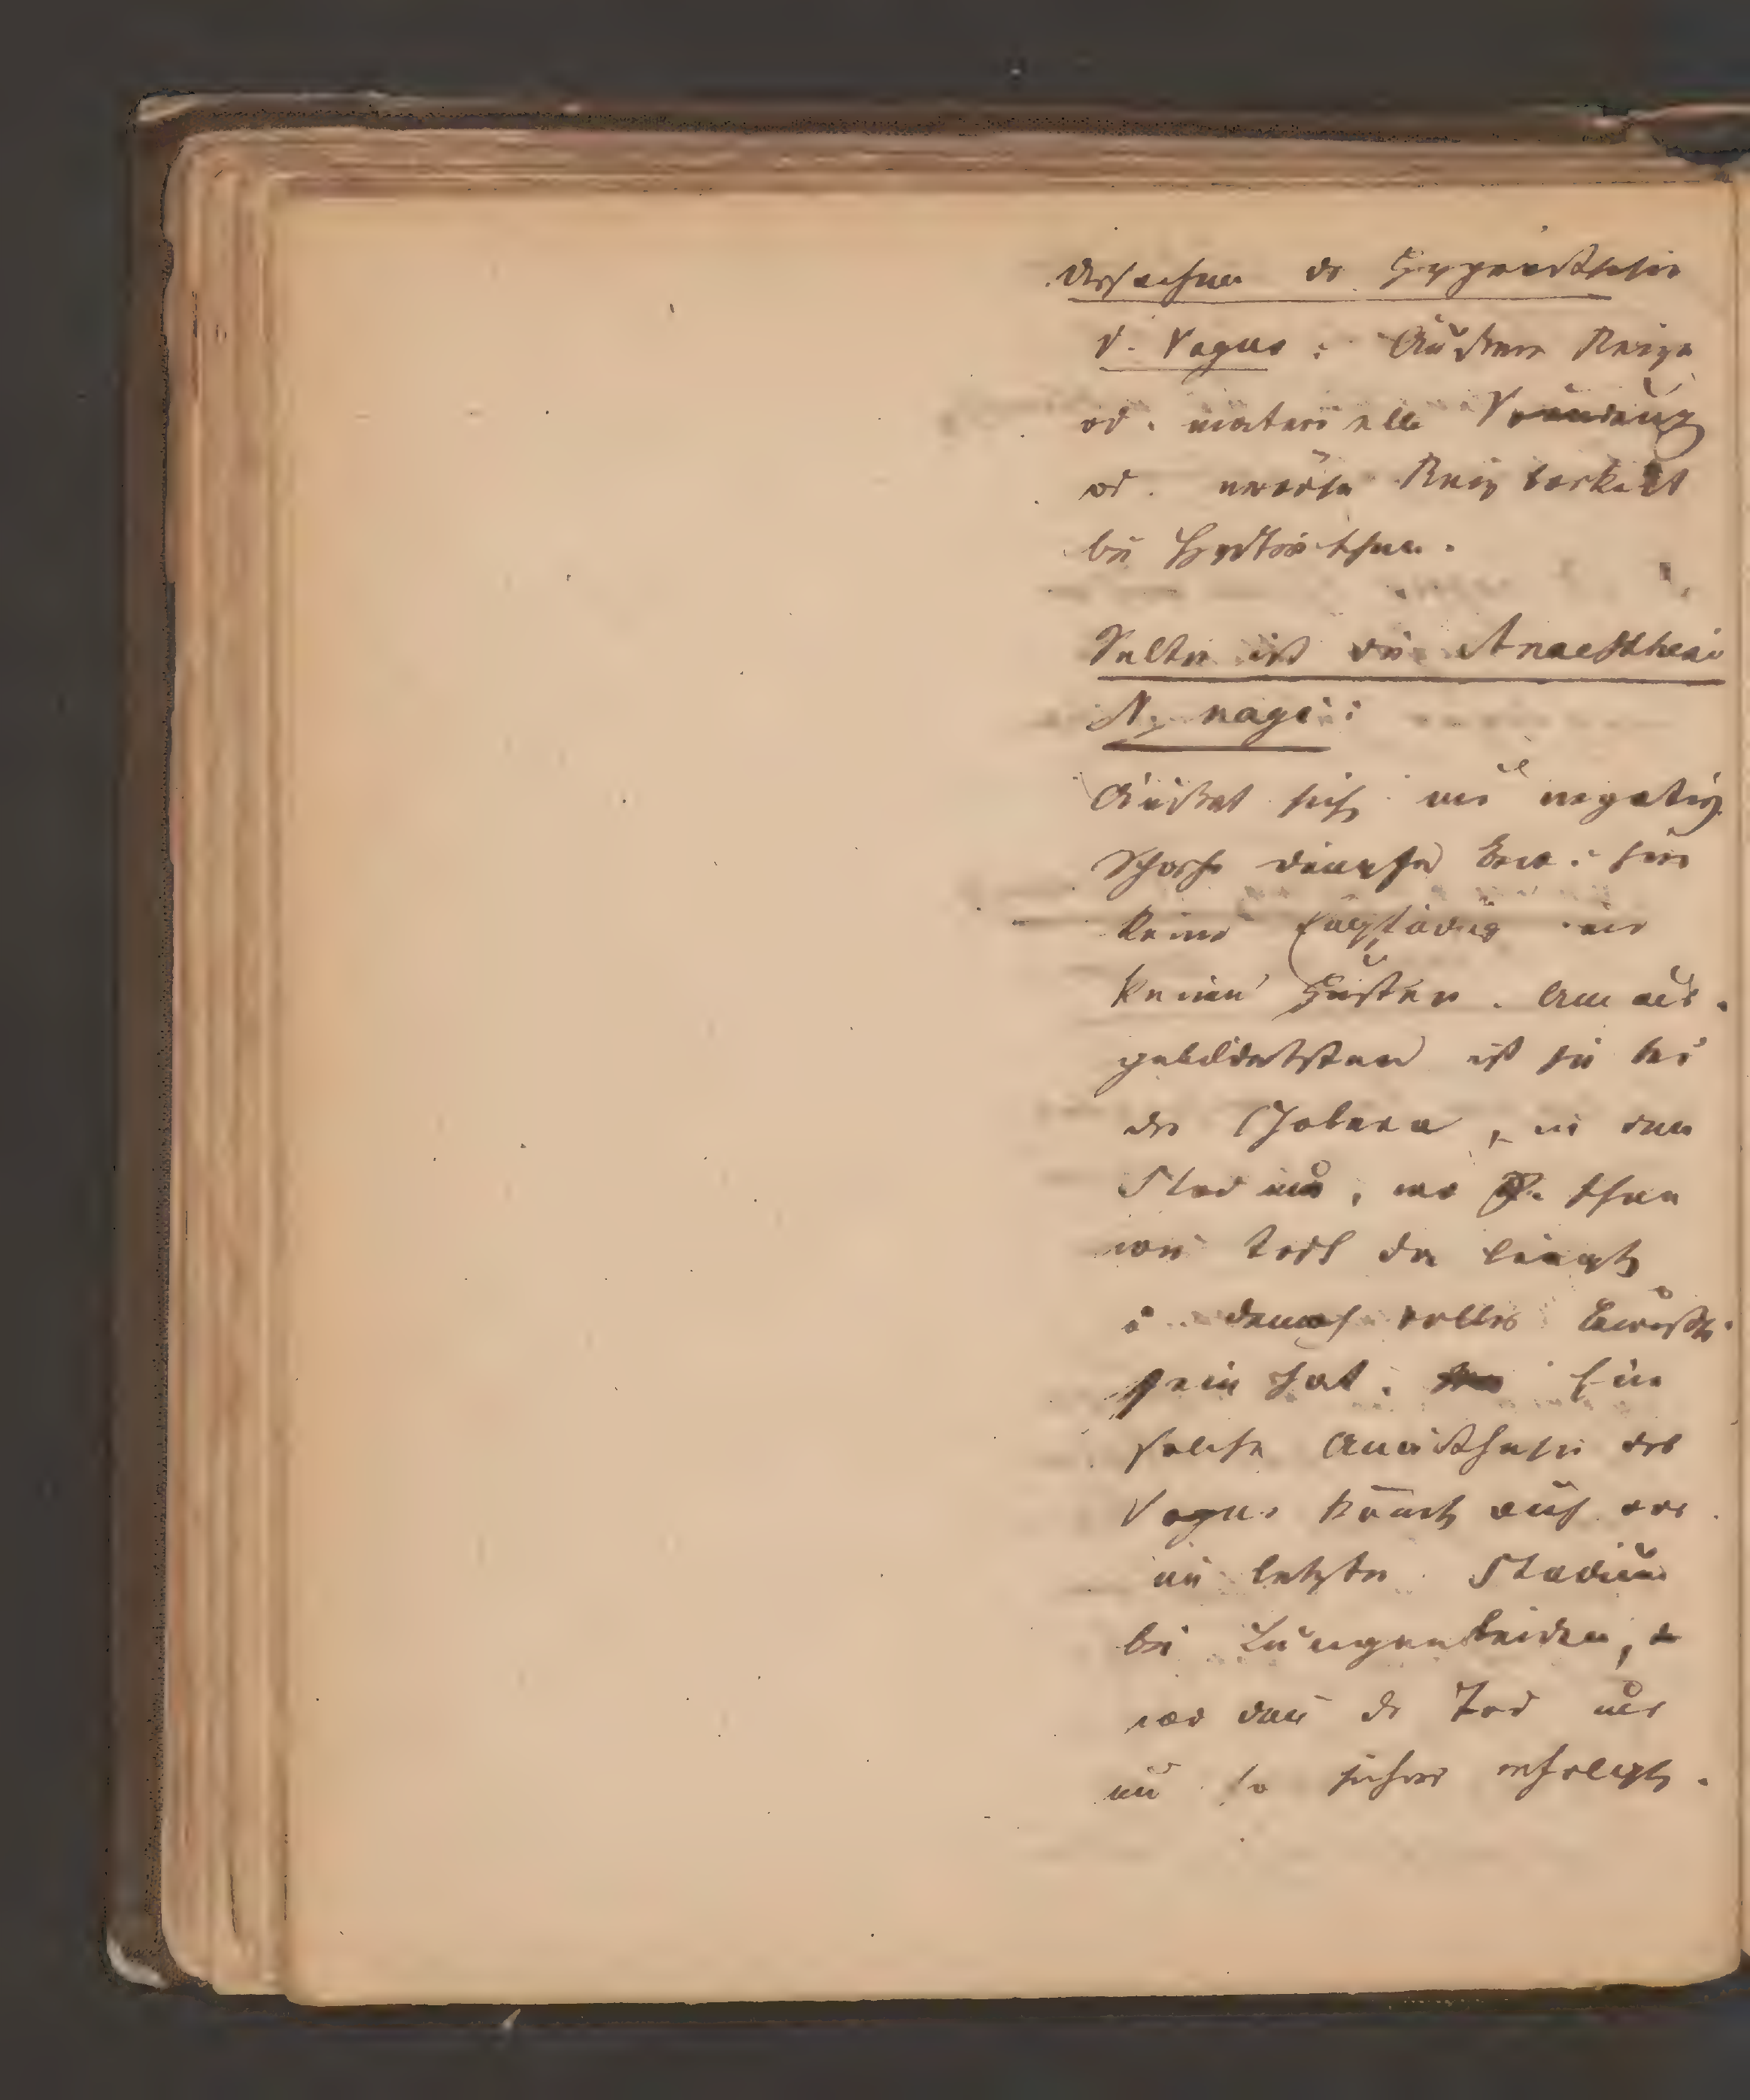 Ursachen der Hyperästhesie
d. Vagus: Äußere Reize
od. materielle Verändrung
od. nervöse Reizbarkeit
bei Hysterischen.
Selten ist die Anaesthesie
N. vagi:
Äußert sich nur negativ
scharfe Dämpfe bew. hier
keine Empfindung und
keinen Husten. Am aus-
gebildetsten ist sie bei
der Cholera, in dem
Stadium, wo P. schon
wie todt da liegt
u. dennoch volles Bewußt-
sein hat. Eine
solche Anästhesie des
Vagus kommt auch vor
im letzten Stadium
bei Lungenleiden,
wo dann der Tod nur
um so sicherer erfolgt.